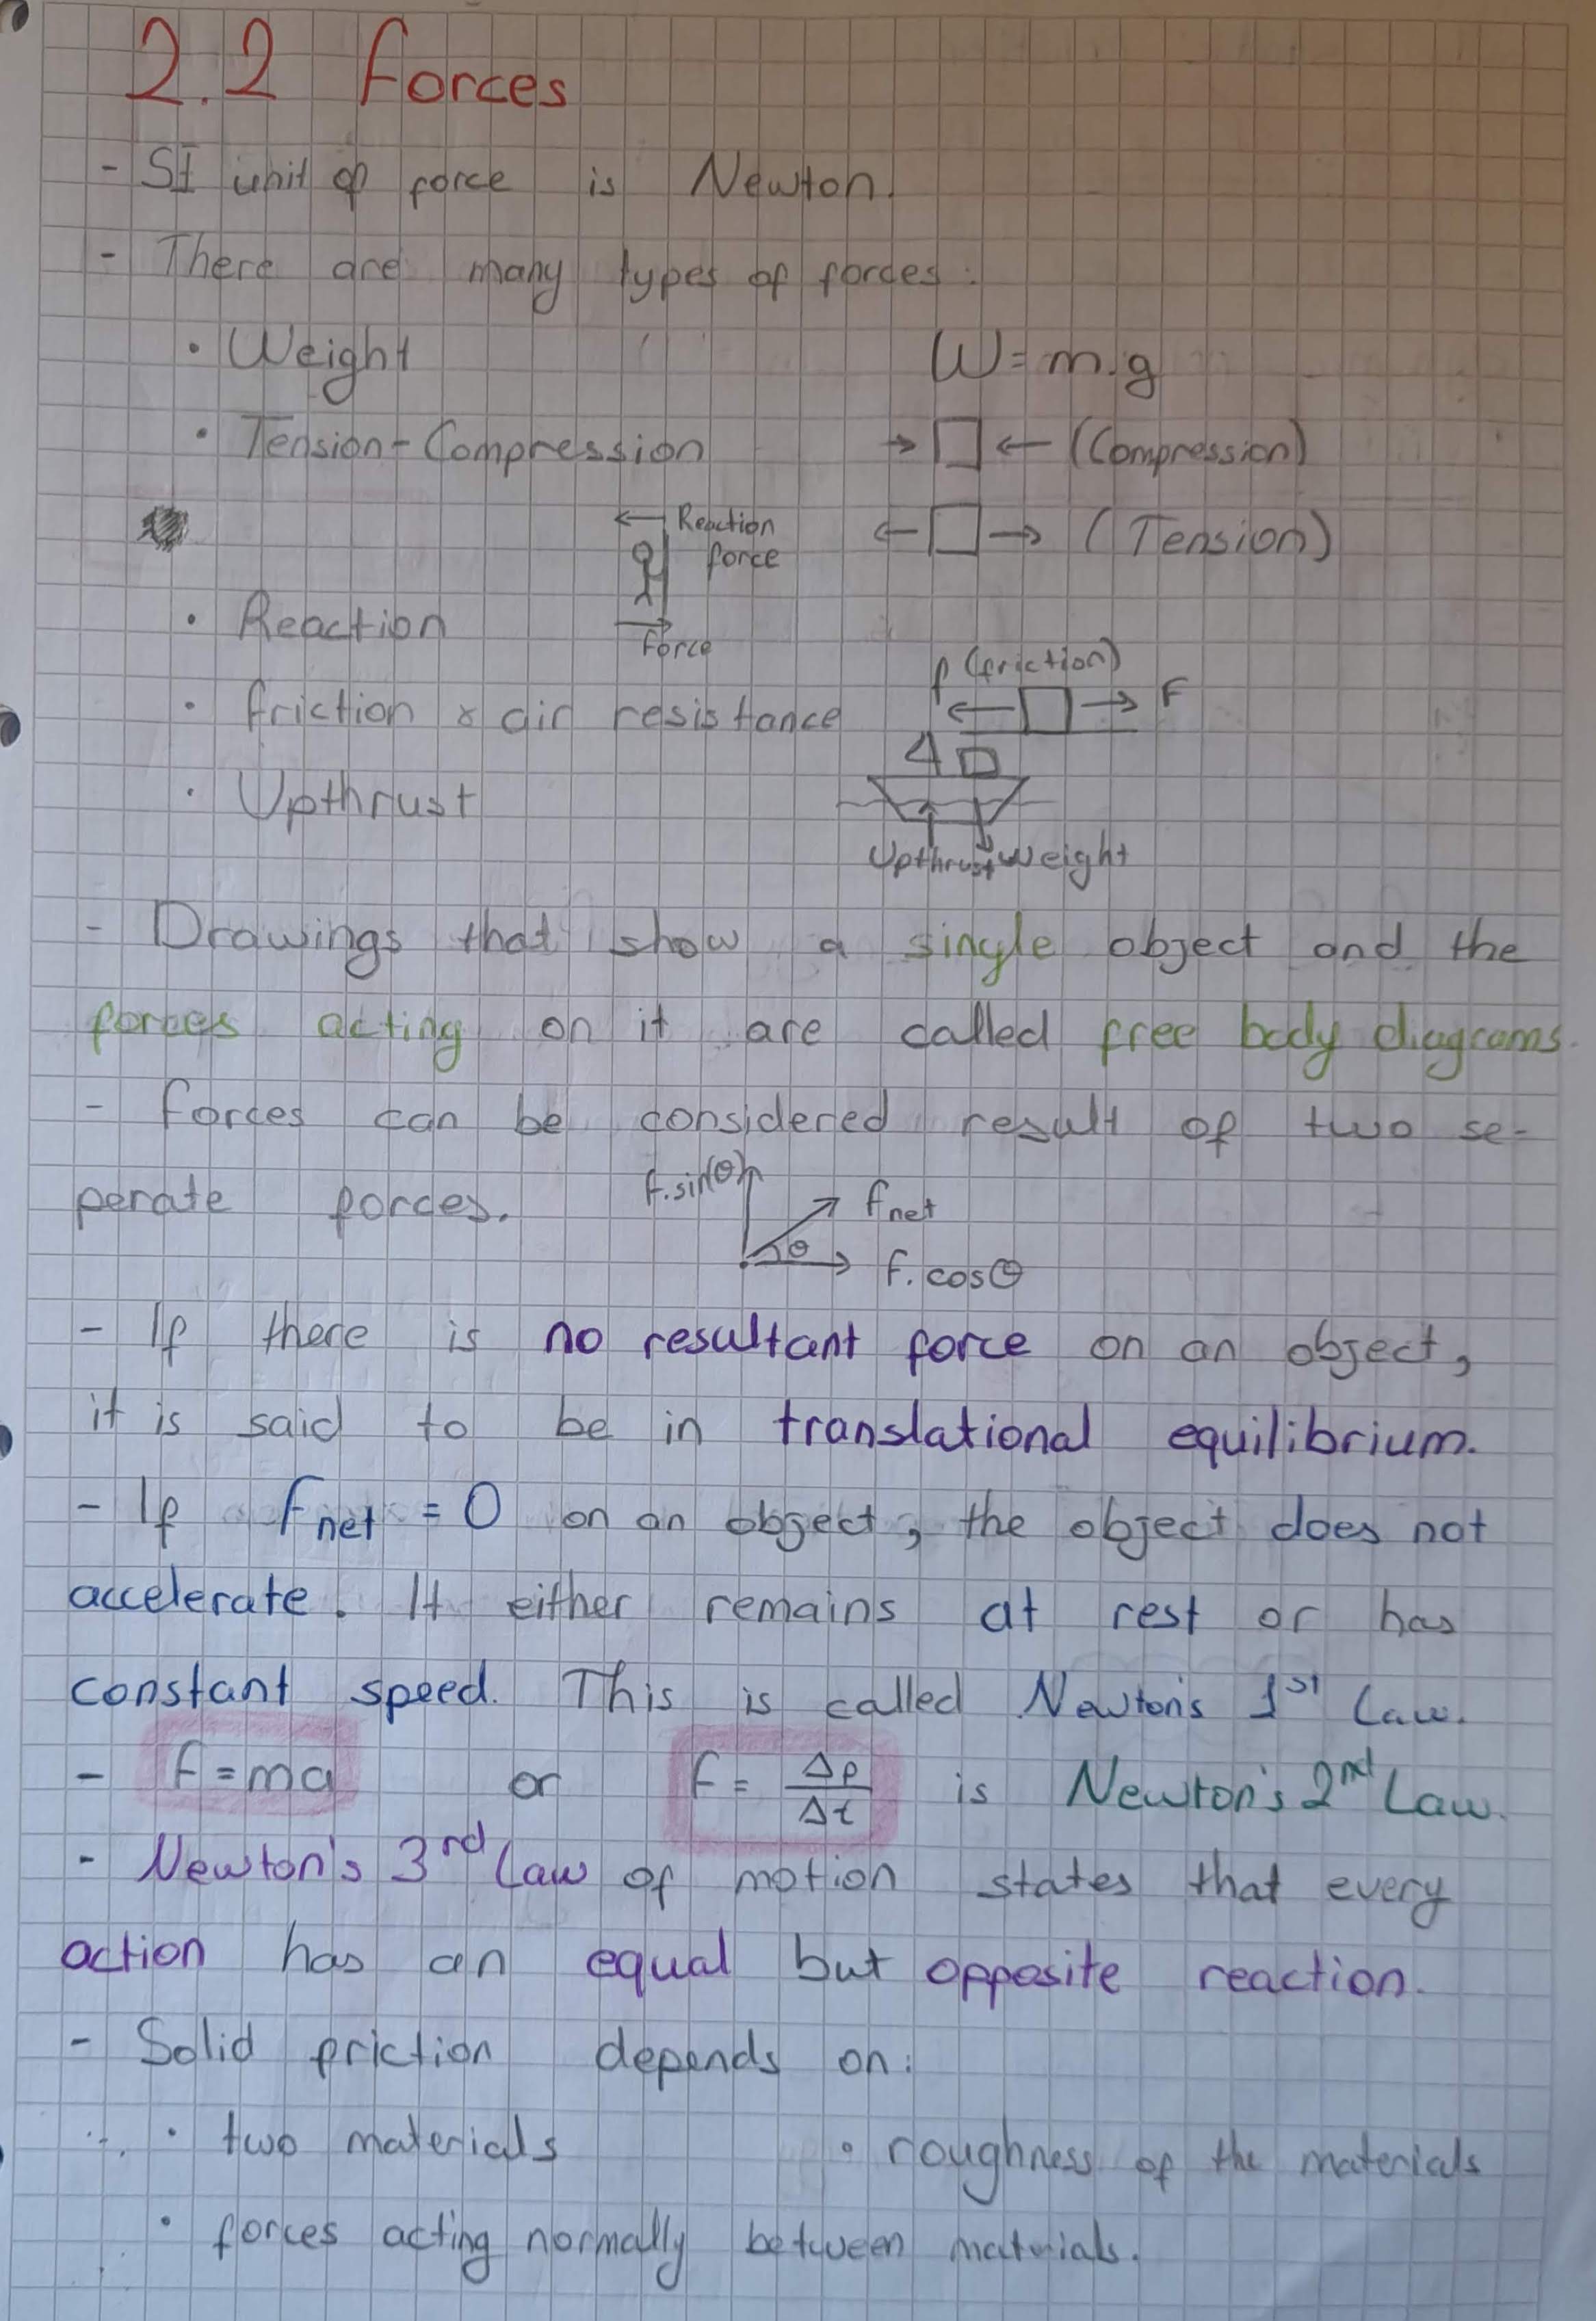 2.2 Forces
- SI unit of force is Newton.
- There are many types of forces:
• Weight W = m.g
• Tension - Compression → □ ← (Compression)
← Reaction force ← □ → (Tension)
• Reaction Force
f (friction)
• friction & air resistance F
• Upthrust
Upthrust Weight
- Drawings that show a single object and the
forces acting on it are called free body diagrams.
- Forces can be considered result of two se-
perate forces. F.sin(θ) Fnet
θ F.cosθ
- If there is no resultant force on an object,
it is said to be in translational equilibrium.
- If Fnet = 0 on an object, the object does not
accelerate. It either remains at rest or has
constant speed. This is called Newton's 1st Law.
- F = ma or F = Δp/Δt is Newton's 2nd Law.
- Newton's 3rd Law of motion states that every
action has an equal but opposite reaction.
- Solid friction depends on:
• two materials • roughness of the materials
• forces acting normally between materials.